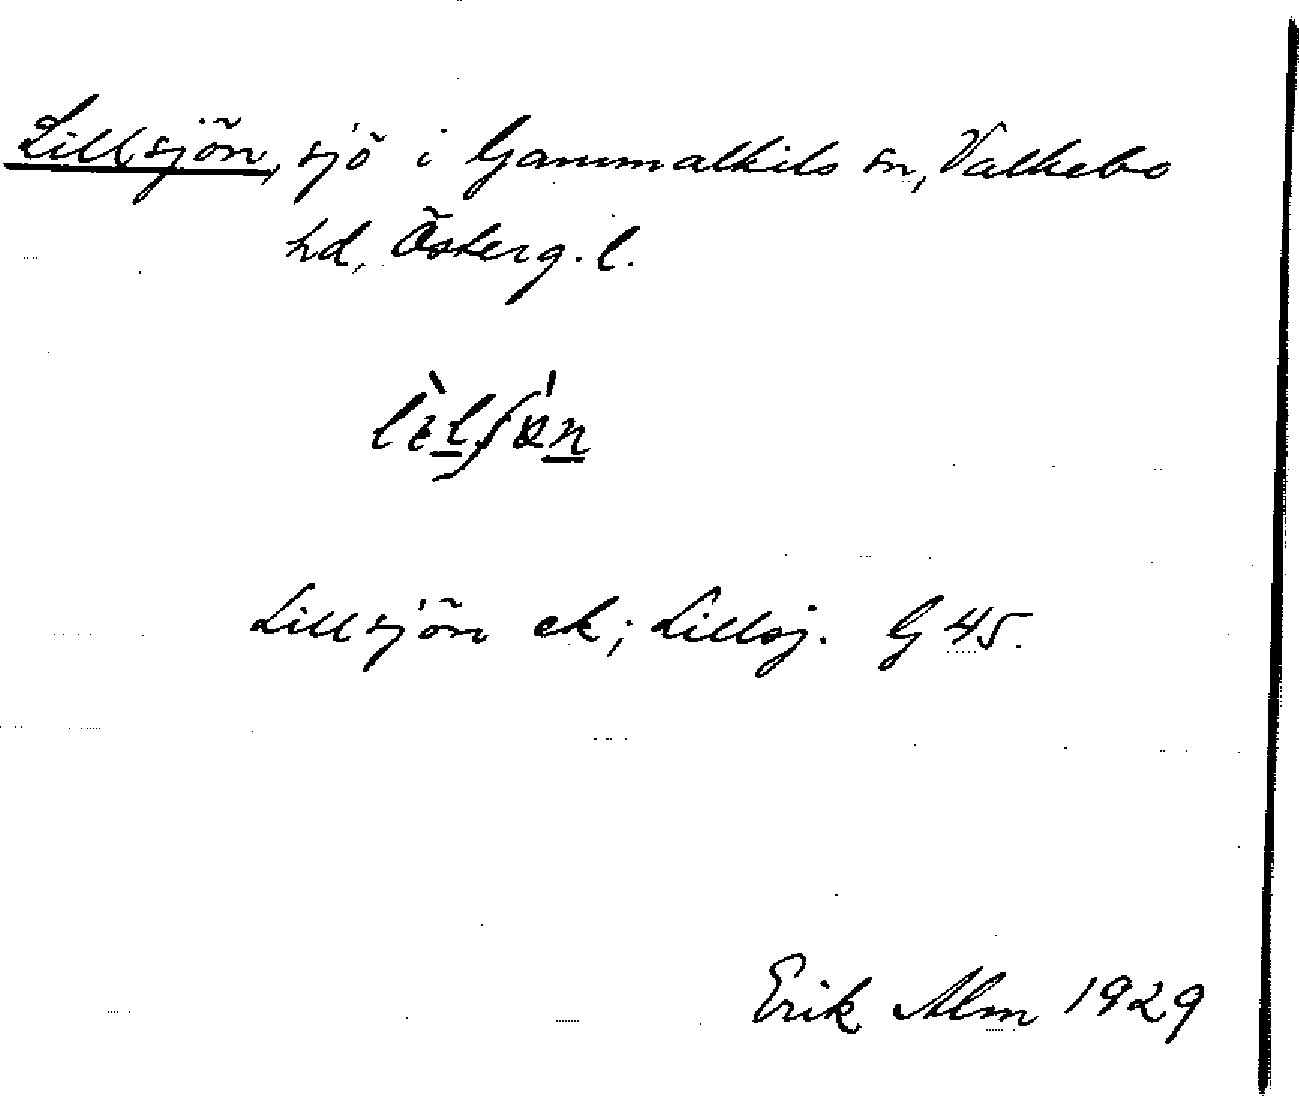 Lillsjön, sjö i Gammalkils sn, Valkebo
hd, Österg. l.
Lillsjön ek; Lillsj. G 45.
Erik Alm 1929